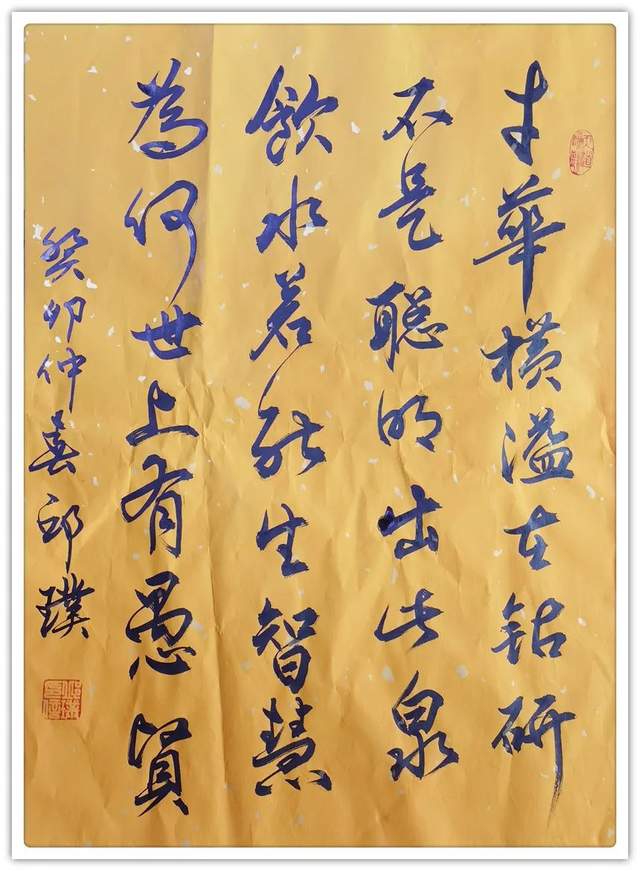 才華横溢在钻研
不是聪明出此泉
飲水若能生智慧
為何世上有愚賢
癸卯仲春邱璞